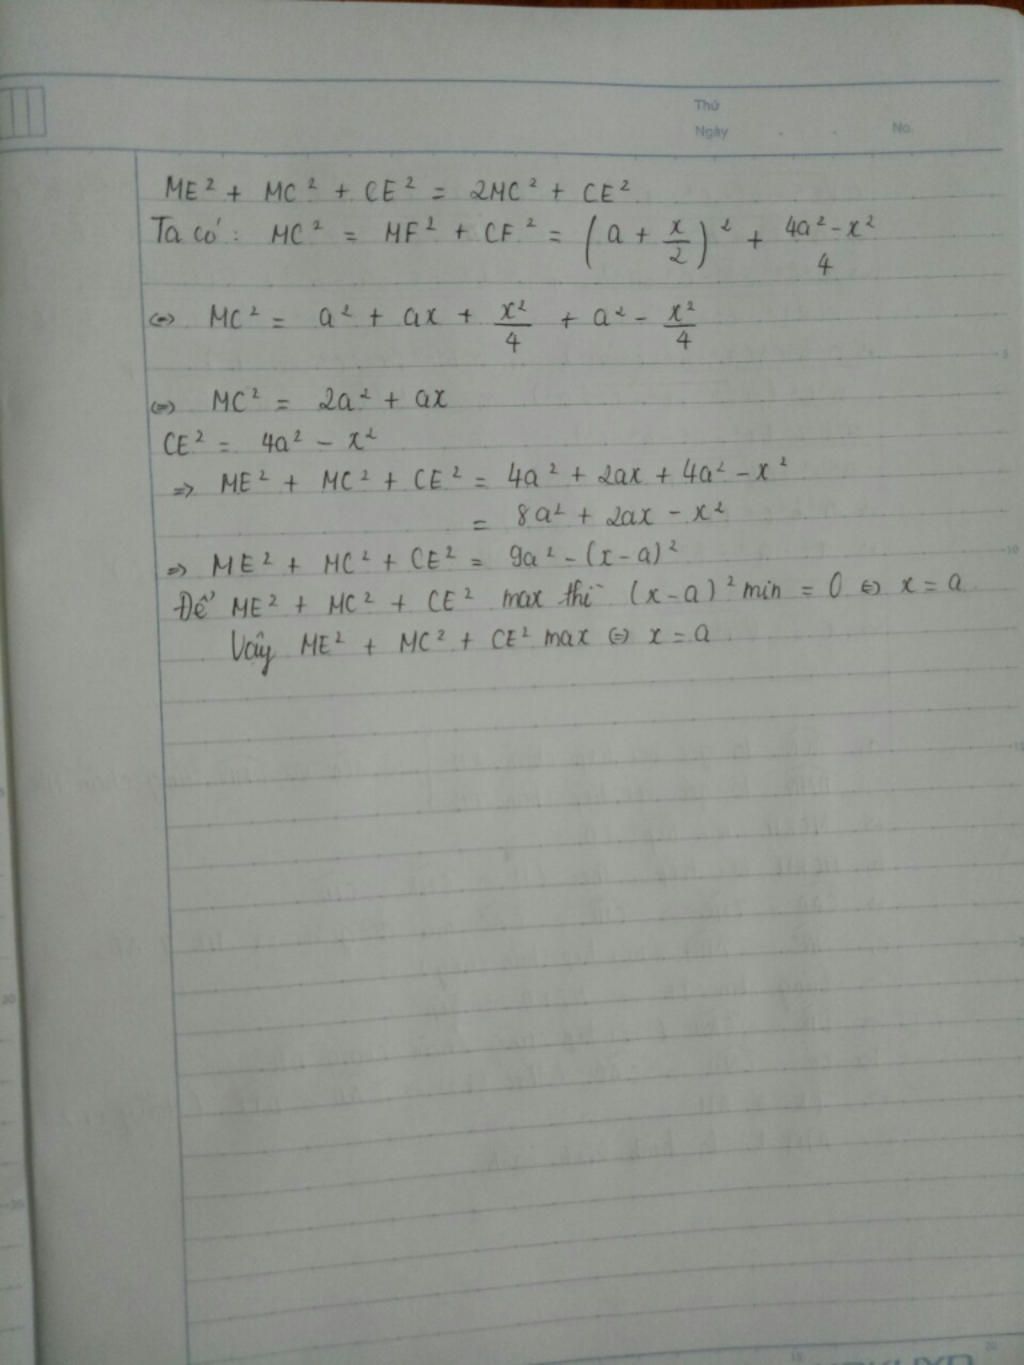 Thứ
Ngày . . No.
ME² + MC² + CE² = 2MC² + CE²
Ta có: MC² = MF² + CF² = (a + x/2)² + (4a² - x²)/4
⇔ MC² = a² + ax + x²/4 + a² - x²/4
⇔ MC² = 2a² + ax
CE² = 4a² - x²
⇒ ME² + MC² + CE² = 4a² + 2ax + 4a² - x²
= 8a² + 2ax - x²
⇒ ME² + MC² + CE² = 9a² - (x - a)²
Để ME² + MC² + CE² max thì (x-a)² min = 0 ⇔ x = a
Vậy ME² + MC² + CE² max ⇔ x = a